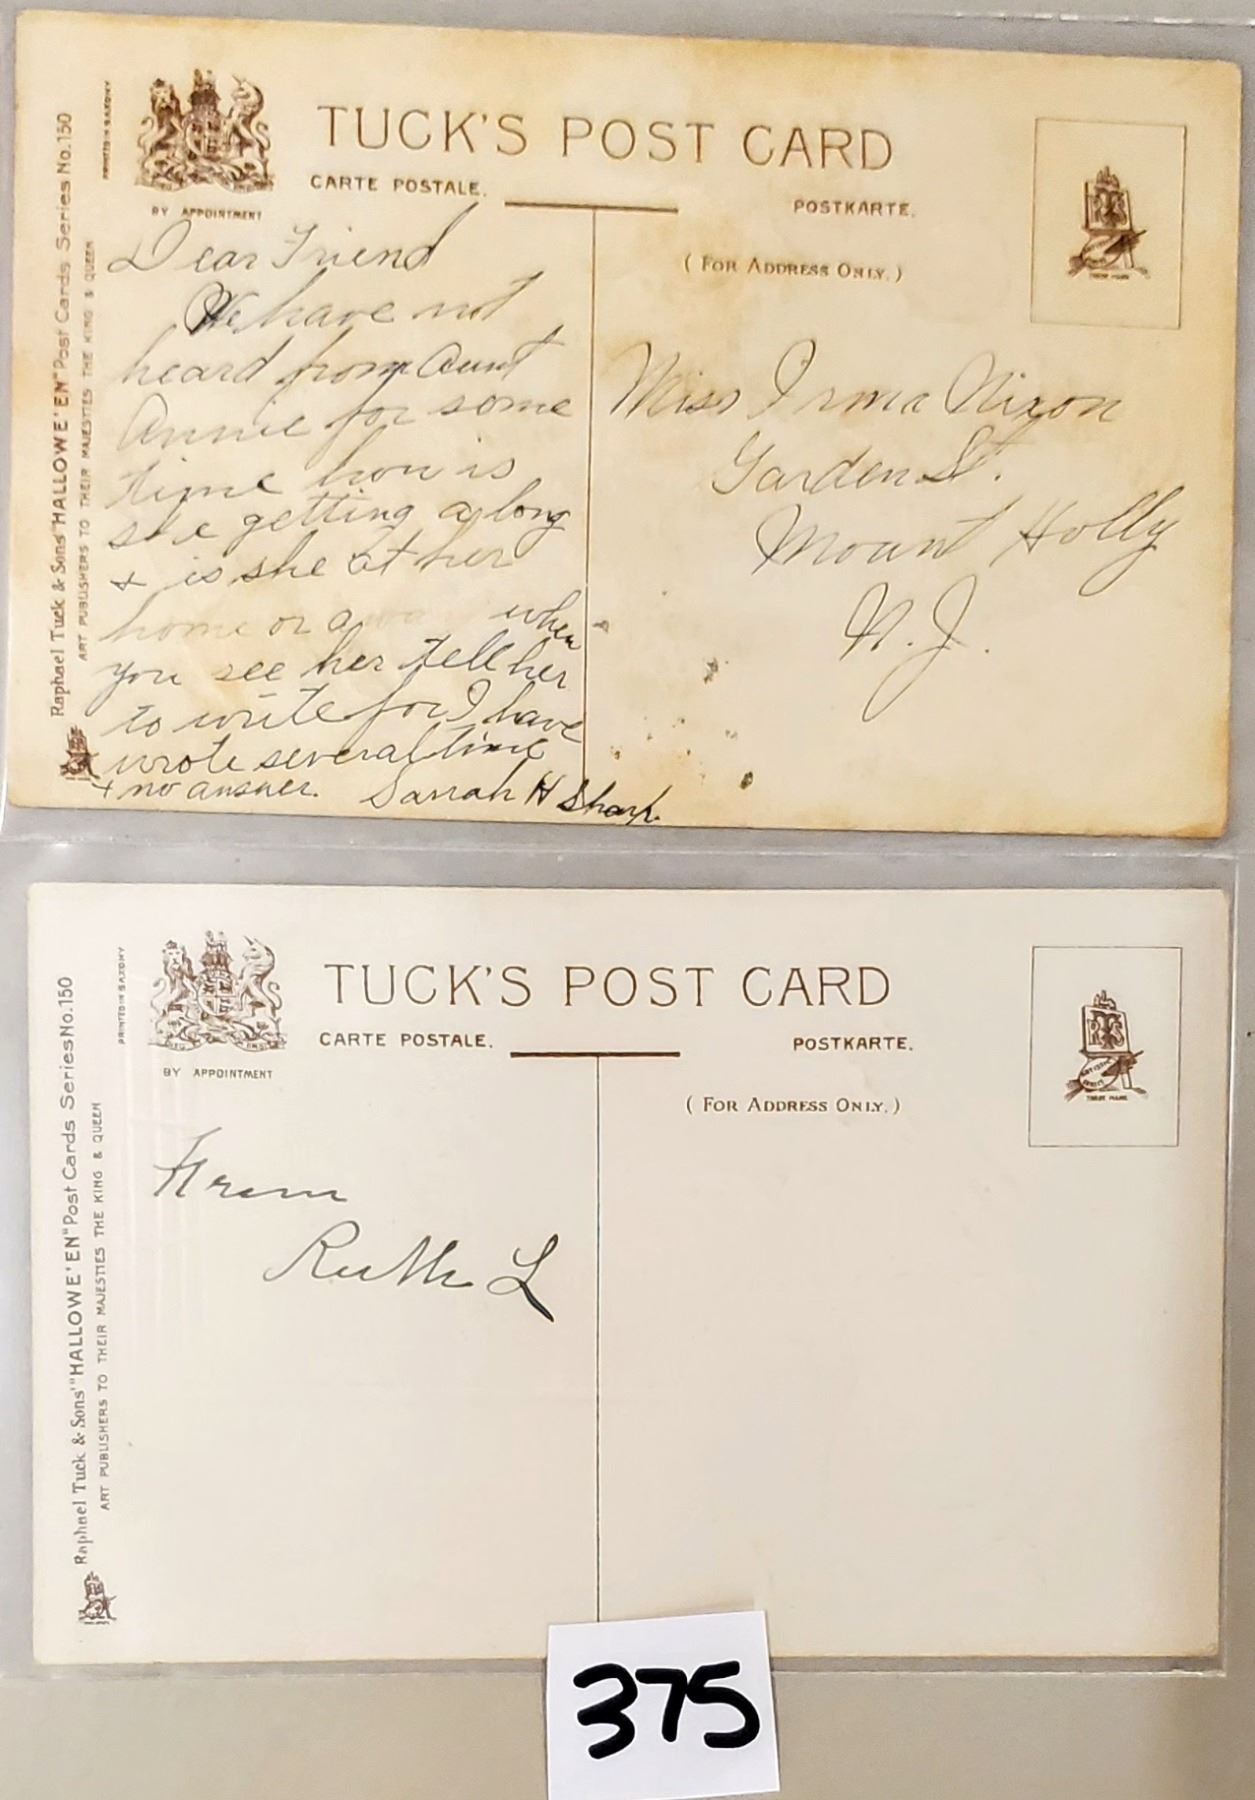 TUCK'S POST CARD
CARTE POSTALE.
POSTKARTE.
(FOR ADDRESS ONLY.)
BY APPOINTMENT
PRINTED IN SAXONY
Raphael Tuck & Sons' "HALLOWE'EN" Post Cards Series No. 150
ART PUBLISHERS TO THEIR MAJESTIES THE KING & QUEEN
TRADE MARK
Dear Friend
We have not
heard from Aunt
Annie for some
time how is
she getting a long
& is she at her
home or away when
you see her tell her
to write for I have
wrote several time
& no answer. Sarrah H Sharp.
Miss Irma Nixon
Garden St.
Mount Holly
N. J.
TUCK'S POST CARD
CARTE POSTALE.
POSTKARTE.
(FOR ADDRESS ONLY.)
BY APPOINTMENT
PRINTED IN SAXONY
Raphael Tuck & Sons' "HALLOWE'EN" Post Cards Series No. 150
ART PUBLISHERS TO THEIR MAJESTIES THE KING & QUEEN
TRADE MARK
From
Ruth L
375